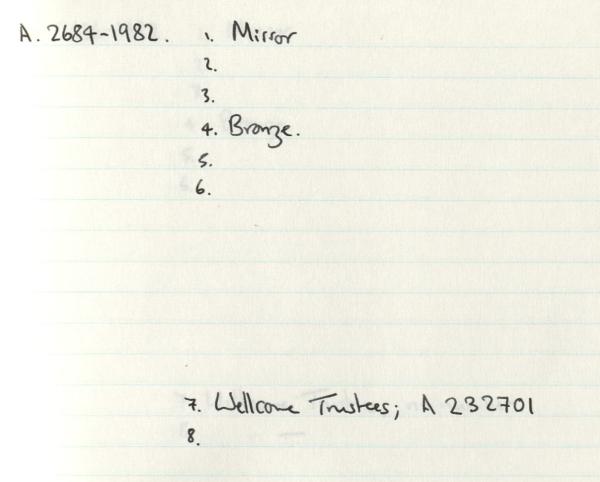 A. 2684-1982. 1. Mirror
2.
3.
4. Bronze.
5.
6.
7. Wellcome Trustees; A 232701
8.